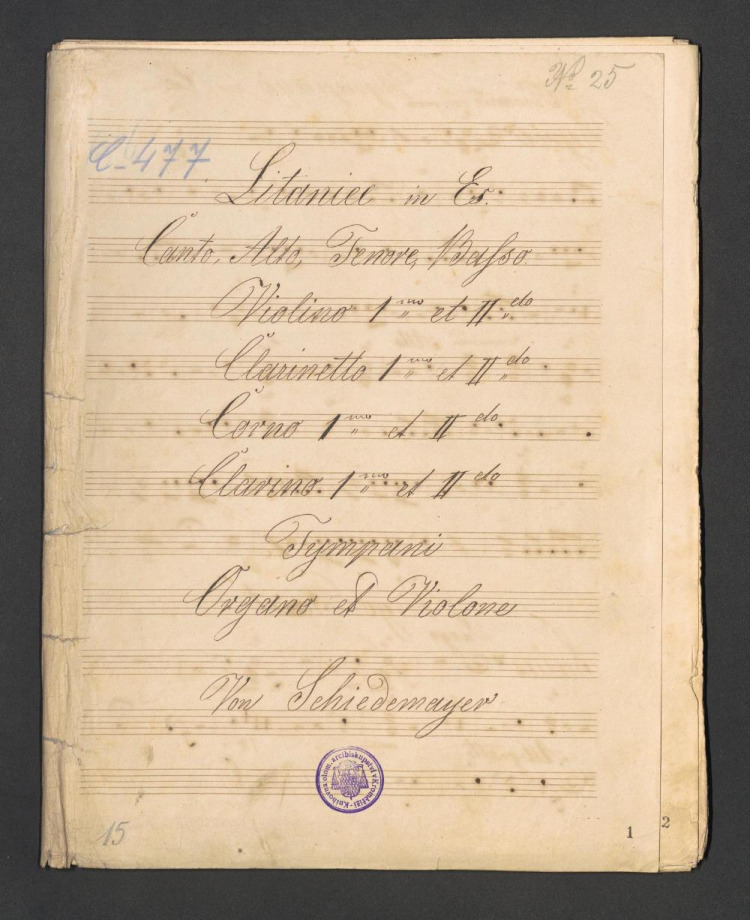 No 25
C-477
Litaniee in Es.
Canto, Alto, Tenore, Basso.
Violino 1mo et IIdo
Clarinetto 1mo et IIdo
Corno 1mo et IIdo
Clarino 1mo et IIdo
Tympani
Organo et Violone
Von Schiedemayer
Knihovna olom. arcibiskupství v Kroměříži
15
1
2